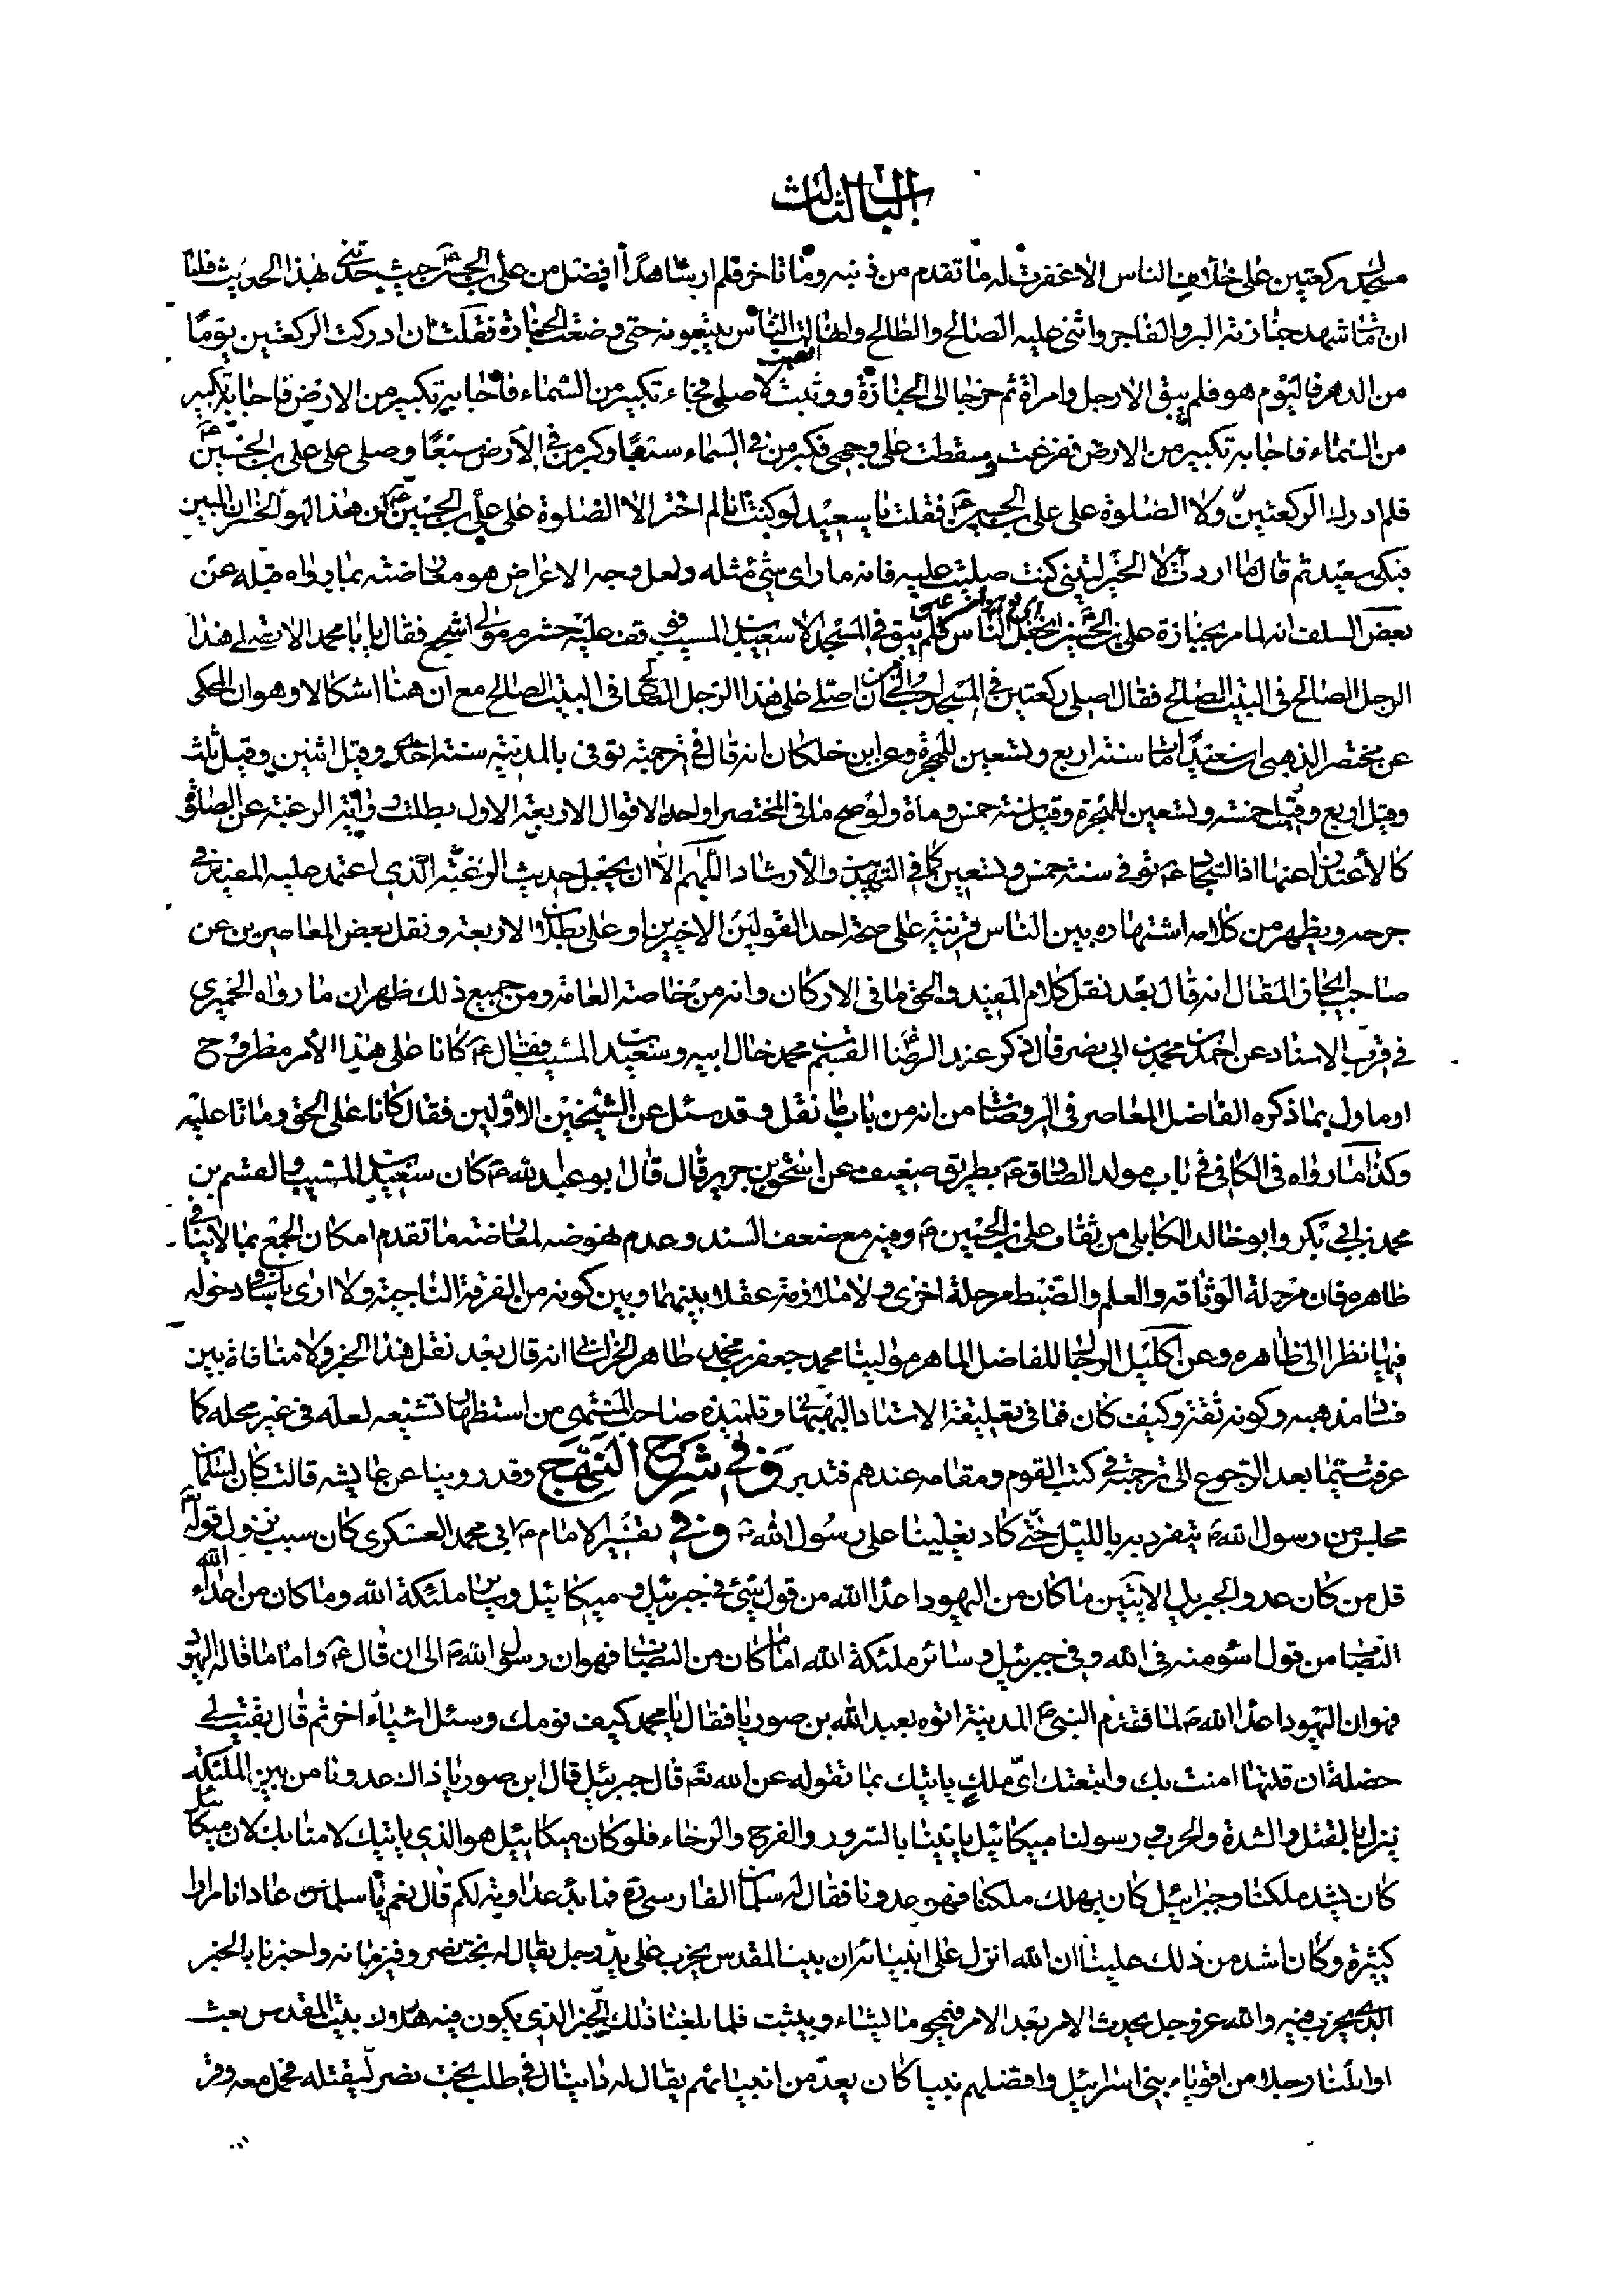 الباب الثالث
مسجدك ركعتين على خلاء من الناس الا غفرت له ما تقدم من ذنبه وما تاخر فلم ار شاهدا افضل من على بن الحسين ع حيث حدثنى بهذا الحديث فلما
ان مات شهد جنازته البر والفاجر واثنى عليه الصالح والطالح وانهال الناس يتبعونه حتى وضعت الجنازة فقلت ان ادركت الركعتين يوما
من الدهر فاليوم هو فلم يبق الا رجل وامراة ثم خرجا الى الجنازة ووثبت لاصلى فجاء تكبير من السماء فاجابه تكبير من الارض فاجابه تكبير
من السماء فاجابه تكبير من الارض ففزعت وسقطت على وجهى فكبر من فى السماء سبعا وكبر من فى الارض سبعا وصلى على على بن الحسين ع
فلم ادرك الركعتين ولا الصلوة على على بن الحسين ع فقلت يا سعيد لو كنت انا لم اختر الا الصلوة على على بن الحسين ع ان هذا لهو الخسران المبين
فبكى سعيد ثم قال ما اردت الا الخير ليتنى كنت صليت عليه فانه ما راى مثله ولعل وجه الاعراض هو معارضته بما رواه قبله عن
بعض السلف انه لما مر بجنازة على بن الحسين ع انجفل الناس فلم يبق فى المسجد الا سعيد بن المسيب فوقف عليه خشرم مولى اشجع فقال يا با محمد الا تصلى هذا
الرجل الصالح فى البيت الصالح فقال اصلى ركعتين فى المسجد احب الى من ان اصلى على هذا الرجل الصالح فى البيت الصالح مع ان هنا اشكالا وهو ان المحكى
عن مختصر الذهبى ان سعيدا مات سنة اربع وتسعين للهجرة وعن ابن خلكان انه قال فى ترجمته توفى بالمدينة سنة احدى وقيل اثنين وقيل ثلث
وقيل اربع وقيل خمسة وتسعين للهجرة وقيل سنة خمس ومأة ولو صح ما فى المختصر او احد الاقوال الاربعة الاول بطلت رواية الرغبة عن الصلوة
كالاعتذار عنها اذ السجاد ع توفى سنة خمس وتسعين كما فى التهذيب والارشاد اللهم الا ان يجعل حديث الرغبة الذى اعتمد عليه المفيد فى
جرحه ويظهر من كلامه اشتهاره بين الناس قرينة على صحة احد القولين الاخيرين او على بطلان الاربعة ونقل بعض المعاصرين عن
صاحب المقال انه قال بعد نقل كلام المفيد والحق ما فى الاركان وانه من خاصة العامة ومن جميع ذلك ظهر ان ما رواه الحميرى
فى قرب الاسناد عن احمد بن محمد بن ابى نصر قال ذكر عند الرضا ع القسم بن محمد خال ابيه وسعيد بن المسيب فقال ع كانا على هذا الامر مطروح
او ماول بما ذكره الفاضل المعاصر فى الروضات من انه من باب ما نقل وقد سئل عن الشيخين الاولين فقال كانا على الحق وماتا عليه
وكذا ما رواه فى الكافى فى باب مولد الصادق ع بطريق ضعيف عن اسحق بن جرير قال قال ابو عبد الله ع كان سعيد بن المسيب والقسم بن
محمد بن ابى بكر وابو خالد الكابلى من ثقات على بن الحسين ع وفيه مع ضعف السند وعدم نهوضه لمعارضته ما تقدم امكان الجمع بما لا ينافى
ظاهره فان مرحلة الوثاقة والعلم والضبط مرحلة اخرى ولا ملازمة عقلا بينهما وبين كونه من الفرقة الناجية ولا ارى باسا فى دخوله
فيها نظرا الى ظاهره وعن اكليل الرجال للفاضل الماهر مولينا محمد جعفر بن محمد طاهر الخراسانى انه قال بعد نقل هذا الخبر ولا منافاة بين
فساد مذهبه وكونه ثقة وكيف كان فما فى تعليقة الاستاد البهبهانى وتلميذه صاحب المنتهى من استظهار تشيعه لعله فى غير محله كما
عرفت سيما بعد الرجوع الى ترجمته فى كتب القوم ومقامه عندهم فتدبر وفى شرح النهج وقد روينا عن عايشه قالت كان لسلمان
مجلس من رسول الله ص ينفرد به بالليل حتى كاد يغلبنا على رسول الله ص وفى تفسير الامام ابى محمد العسكرى كان سبب نزول قوله
قل من كان عدوا لجبريل الايتين ما كان من اليهود اعداء الله من قول سيئ فى جبرئيل وميكائيل وساير ملئكة الله وما كان من اعداء الله
النصاب من قول اسوء منه فى الله وفى جبرئيل وسائر ملئكة الله اما ما كان من النصاب فهو ان رسول الله ص الى ان قال ع واما ما قاله اليهود
فهو ان اليهود اعداء الله لما قدم النبى ص المدينة اتوه بعبد الله بن صوريا فقال يا محمد كيف نومك وسئل اشياء اخر ثم قال بقيت لى
خصلة ان قلتها امنت بك واتبعتك اى ملك ياتيك بما تقوله عن الله تعالى قال جبرئيل قال ابن صوريا ذاك عدونا من بين الملئكة
ينزل بالقتل والشدة والحرب ورسولنا ميكائيل ياتينا بالسرور والفرح والرخاء فلو كان ميكائيل هو الذى ياتيك لامنا بك لان ميكائيل
كان يشد ملكنا وجبرائيل كان يهلك ملكنا فهو عدونا فقال له سلمان الفارسى ره فما بدء عداوته لكم قال نعم يا سلمان عادانا مرارا
كثيرة وكان اشد من ذلك علينا ان الله انزل على انبيائه ان بيت المقدس يخرب على يد رجل يقال له بخت نصر وفى زمانه واخبرنا بالحين
الذى يخرب فيه والله عز وجل يحدث الامر بعد الامر فيمحو ما يشاء ويثبت فلما بلغنا ذلك الحين الذى يكون فيه هلاك بيت المقدس بعث
اوائلنا رجلا من اقوياء بنى اسرائيل وافضلهم نبيا كان يعد من انبيائهم يقال له دانيال فى طلب بخت نصر ليقتله فحمل معه وقر